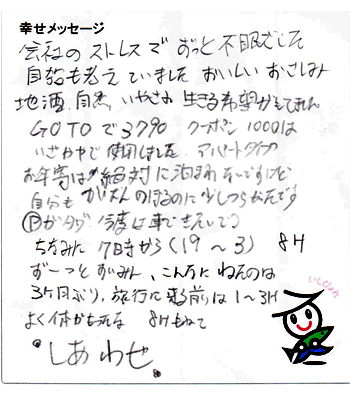 幸せメッセージ
会社のストレスで ずっと不眠でした
自殺も考えていました おいしいおさしみ
地酒、自然、いやされ 生きる希望がもてました
GOTOで3790 クーポン1000は
いざかやで使用しました アパートタイプ
お年寄は絶対に泊まれそですけど
自分も かいだんのぼるのに少しつらかたです
Ⓟがタダ 今度は車で
ちなみに 7時から(19~3) 8H
ずーっとすいみん、こんなにねんのは
3ヶ月ぶり、旅行に来る前は1~3H
よく体がもてる 8Hもねて
しあわせ